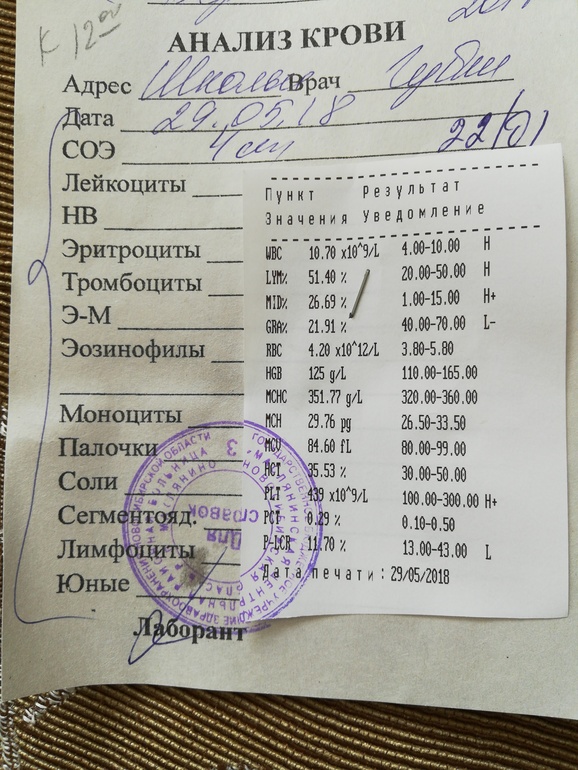 К 12 00
АНАЛИЗ КРОВИ
Адрес Врач Губин
Дата 29.05.18
СОЭ 4 мм
Лейкоциты
НВ
Эритроциты
Тромбоциты
Э-М
Эозинофилы
Моноциты
Палочки
Соли
Сегментояд.
Лимфоциты
Юные
Лаборант
Пункт Результат
Значения Уведомление
WBC 10.70 x10^9/L 4.00-10.00 H
LYM% 51.40 % 20.00-50.00 H
MID% 26.69 % 1.00-15.00 H+
GRA% 21.91 % 40.00-70.00 L-
RBC 4.20 x10^12/L 3.80-5.80
HGB 125 g/L 110.00-165.00
MCHC 351.77 g/L 320.00-360.00
MCH 29.76 pg 26.50-33.50
MCV 84.60 fL 80.00-99.00
HCT 35.53 % 30.00-50.00
PLT 439 x10^9/L 100.00-300.00 H+
PCT 0.29 % 0.10-0.50
P-LCR 11.70 % 13.00-43.00 L
Дата печати: 29/05/2018
Для
справок
3